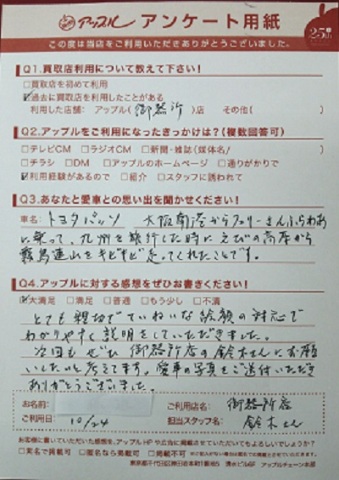 アップル アンケート用紙
25周年
この度は当店をご利用いただきありがとうございました。
Q1.買取店利用について教えて下さい!
□買取店を初めて利用
☑過去に買取店を利用したことがある
利用した店舗: アップル( 御器所 )店 その他( )
Q2.アップルをご利用になったきっかけは?(複数回答可)
□テレビCM □ラジオCM □新聞・雑誌(媒体名/ )
□チラシ □DM □アップルのホームページ □通りがかりで
☑利用経験があるので □紹介 □スタッフに誘われて
Q3.あなたと愛車との思い出を聞かせください!
車名: トヨタパッソ 大阪南港からフェリーさんふらわあ
に乗って、九州を旅行した時にえびの高原から
霧島連山をキビキビ走ってくれたことです。
Q4.アップルに対する感想をぜひお書きください!
☑大満足 □満足 □普通 □もう少し □不満
とても親切でていねいな 対応で
わかりやすく説明をしていただきました。
次回もぜひ 御器所店の鈴木さんにお願
いしたいと考えてます。愛車の写真もご送付いただき
ありがとうございました。
お名前:
ご利用日: 10/24
ご利用店名: 御器所店
担当スタッフ名: 鈴木さん
お客様に書いていただいた感想を、アップルHPや広告に掲載させていただいてもよろしいでしょうか?
□実名で掲載可 □匿名なら掲載可 □掲載不可
アップルチェーン本部